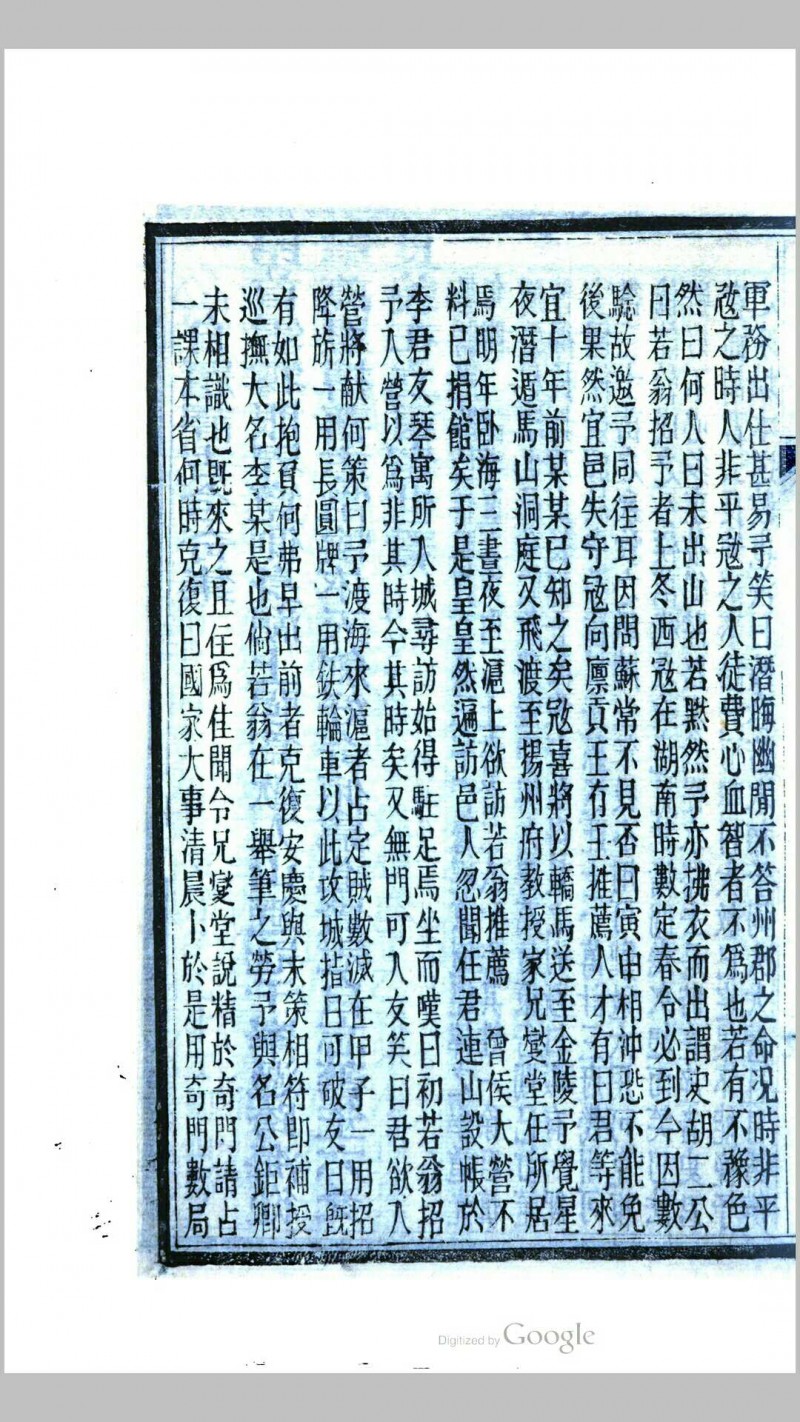 軍務出仕甚易予笑曰潛晦幽閒不答州郡之命况時非平
寇之時人非平寇之人徒費心血智者不爲也若有不豫色
然曰何人曰未出山也若黙然予亦拂衣而出謂史胡二公
曰若翁招予者上冬西寇在湖南時數定春令必到今因數
騐故邀予同往耳因問蘇常不見否曰寅申相沖恐不能免
後果然宜邑失守寇向廪貢王冇王推薦人才有曰君等來
宜十年前某某已知之矣寇喜將以轎馬送至金陵予覺星
夜潛遁馬山洞庭又飛渡至揚州府教授家兄燮堂任所居
焉明年卧海三晝夜至滬上欲訪若翁推薦 曾侯大營不
料已捐館矣于是皇皇然遍訪邑人忽聞任君連山設帳於
李君友琴寓所入城尋訪始得駐足焉坐而嘆曰初若翁招
予入營以爲非其時今其時矣又無門可入友笑曰君欲入
營將献何策曰予渡海來滬者占定賊數滅在甲子一用招
降旂一用長圓牌一用鉄輪車以此攻城指日可破友曰旣
有如此抱負何弗早出前者克復安慶與末策相符即補授
巡撫大名李某是也倘若翁在一舉筆之勞予與名公鉅卿
未相識也旣來之且住爲佳聞令兄燮堂說精於奇門請占
一課本省何時克復曰國家大事清晨卜於是用奇門數局
Digitized by Google